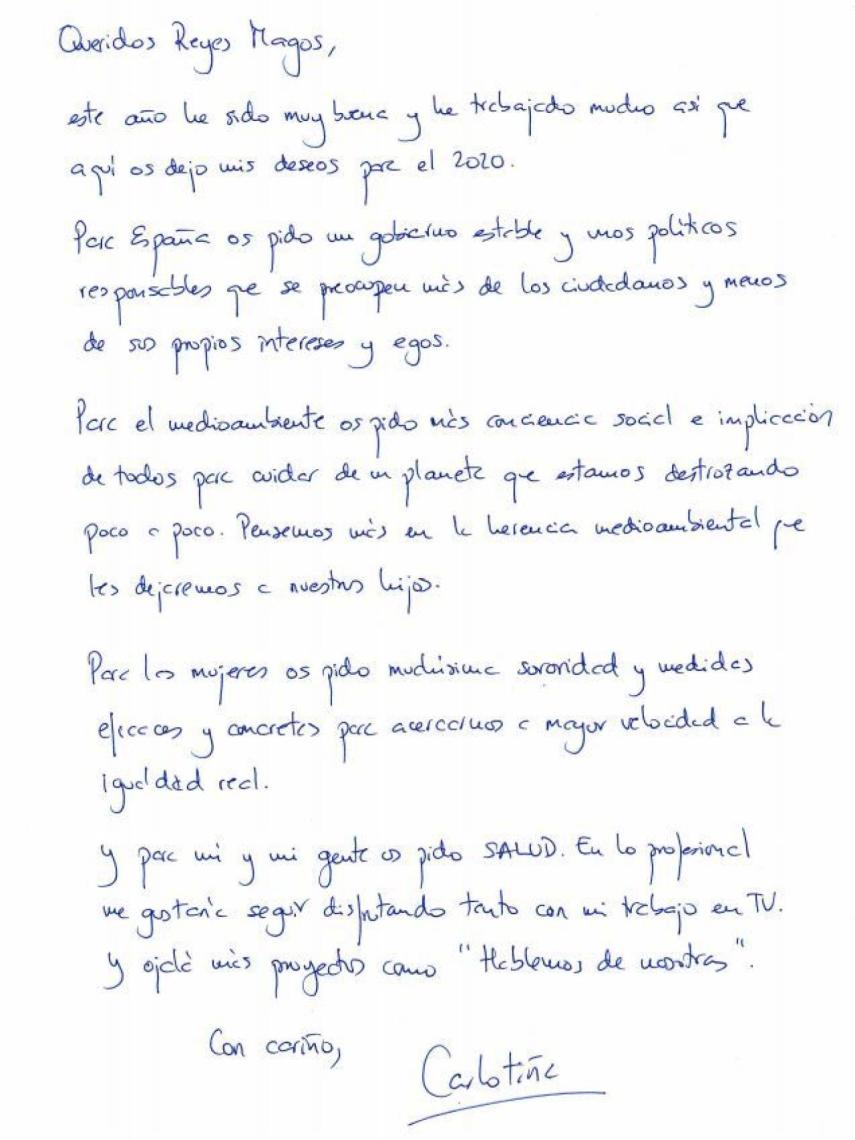 Queridos Reyes Magos,
este año he sido muy buena y he trabajado mucho así que
aquí os dejo mis deseos para el 2020.
Para España os pido un gobierno estable y unos políticos
responsables que se preocupen más de los ciudadanos y menos
de sus propios intereses y egos.
Para el medioambiente os pido más conciencia social e implicación
de todos para cuidar de un planeta que estamos destrozando
poco a poco. Pensemos más en la herencia medioambiental que
les dejaremos a nuestros hijos.
Para las mujeres os pido muchísima sororidad y medidas
eficaces y concretas para acercarnos a mayor velocidad a la
igualdad real.
Y para mi y mi gente os pido SALUD. En lo profesional
me gustaría seguir disfrutando tanto con mi trabajo en TV.
Y ojalá más proyectos como "Hablemos de nosotras".
Con cariño,
Carlotiña